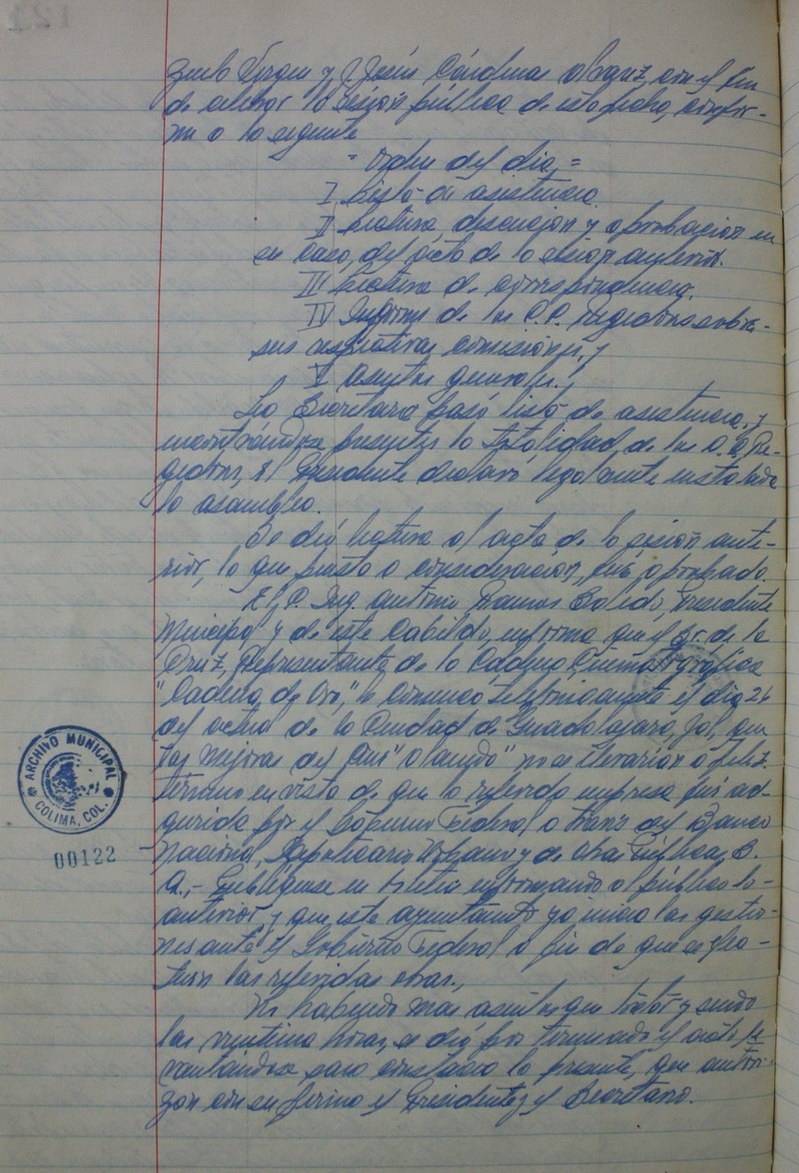 y J. Jesús Cárdenas con el fin
de celebrar la sesión pública de esta fecha, confor-
me a lo siguiente
= Orden del día =
I Lista de asistencia.
II Lectura, discusión y aprobación en
su caso, del acta de la sesión anterior.
III Lectura de correspondencia.
IV Informe de los C.C. Regidores sobre
sus respectivas comisiones, y
V Asuntos generales.
La Secretaria pasó lista de asistencia, y
encontrándose presentes la totalidad de los C.C. Re-
gidores, el Presidente declaró legalmente instalada
la asamblea.
Se dió lectura al acta de la sesión ante-
rior, la que puesta a consideración, fué aprobada.
El C. Ing. Antonio Ramos Salido, Presidente
Municipal y de este Cabildo, informa que el Sr. de la
Cruz, Representante de la Cadena Cinematográfica
"Cadena de Oro", le comunicó telefónicamente el día 24
del actual de la Ciudad de Guadalajara, Jal., que
las mejoras del Cine no se llevarían a feliz
término en vista de que la referida empresa fué ad-
quirida por el Gobierno Federal a través del Banco
Nacional Hipotecario Urbano y de Obras Públicas, S.
A.,- Publíquese en informando al público lo
anterior, y que este ayuntamiento ya inició las gestio-
nes ante el Gobierno Federal a fin de que se efec-
túen las referidas obras.,
No habiendo mas asuntos que tratar y siendo
las horas, se dió por terminado el acto le-
vantándose para constancia la presente, que autori-
zan con su firma el Presidente y el Secretario.
ARCHIVO MUNICIPAL
COLIMA, COL.
00122